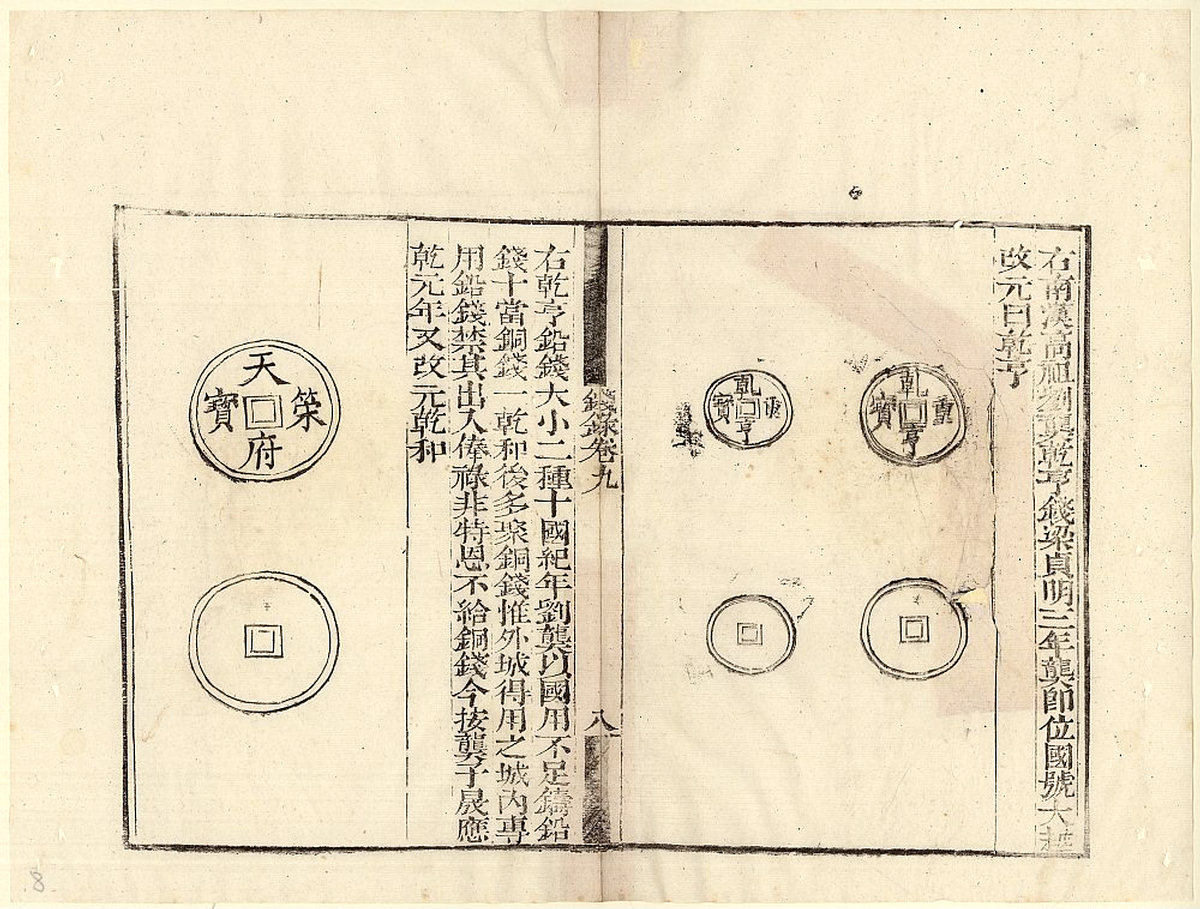 右南漢高祖劉龑乾亨錢梁貞明三年龑卽位國號大越
改元曰乾亨
乾亨重寶
乾亨重寶
錢錄卷九
八
右乾亨鉛錢大小二種十國紀年劉龑以國用不足鑄鉛
錢十當銅錢一乾和後多聚銅錢惟外城得用之城內專
用鉛錢禁其出入俸祿非特恩不給銅錢今按龑子晟應
乾元年又改元乾和
天策府寶
8